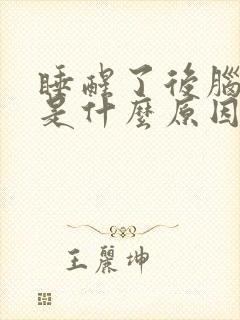 睡醒了後腦
是什麼原因
王麗坤